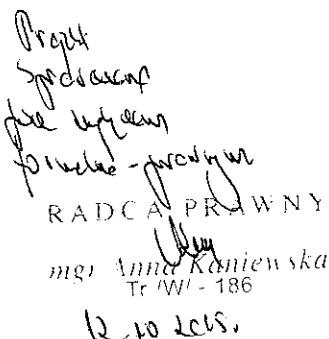 Projekt
sprawdzono
pod względem
formalno-prawnym
RADCA PRAWNY
mgr Anna Kaniewska
Tr/W/-186
12.10.2015.